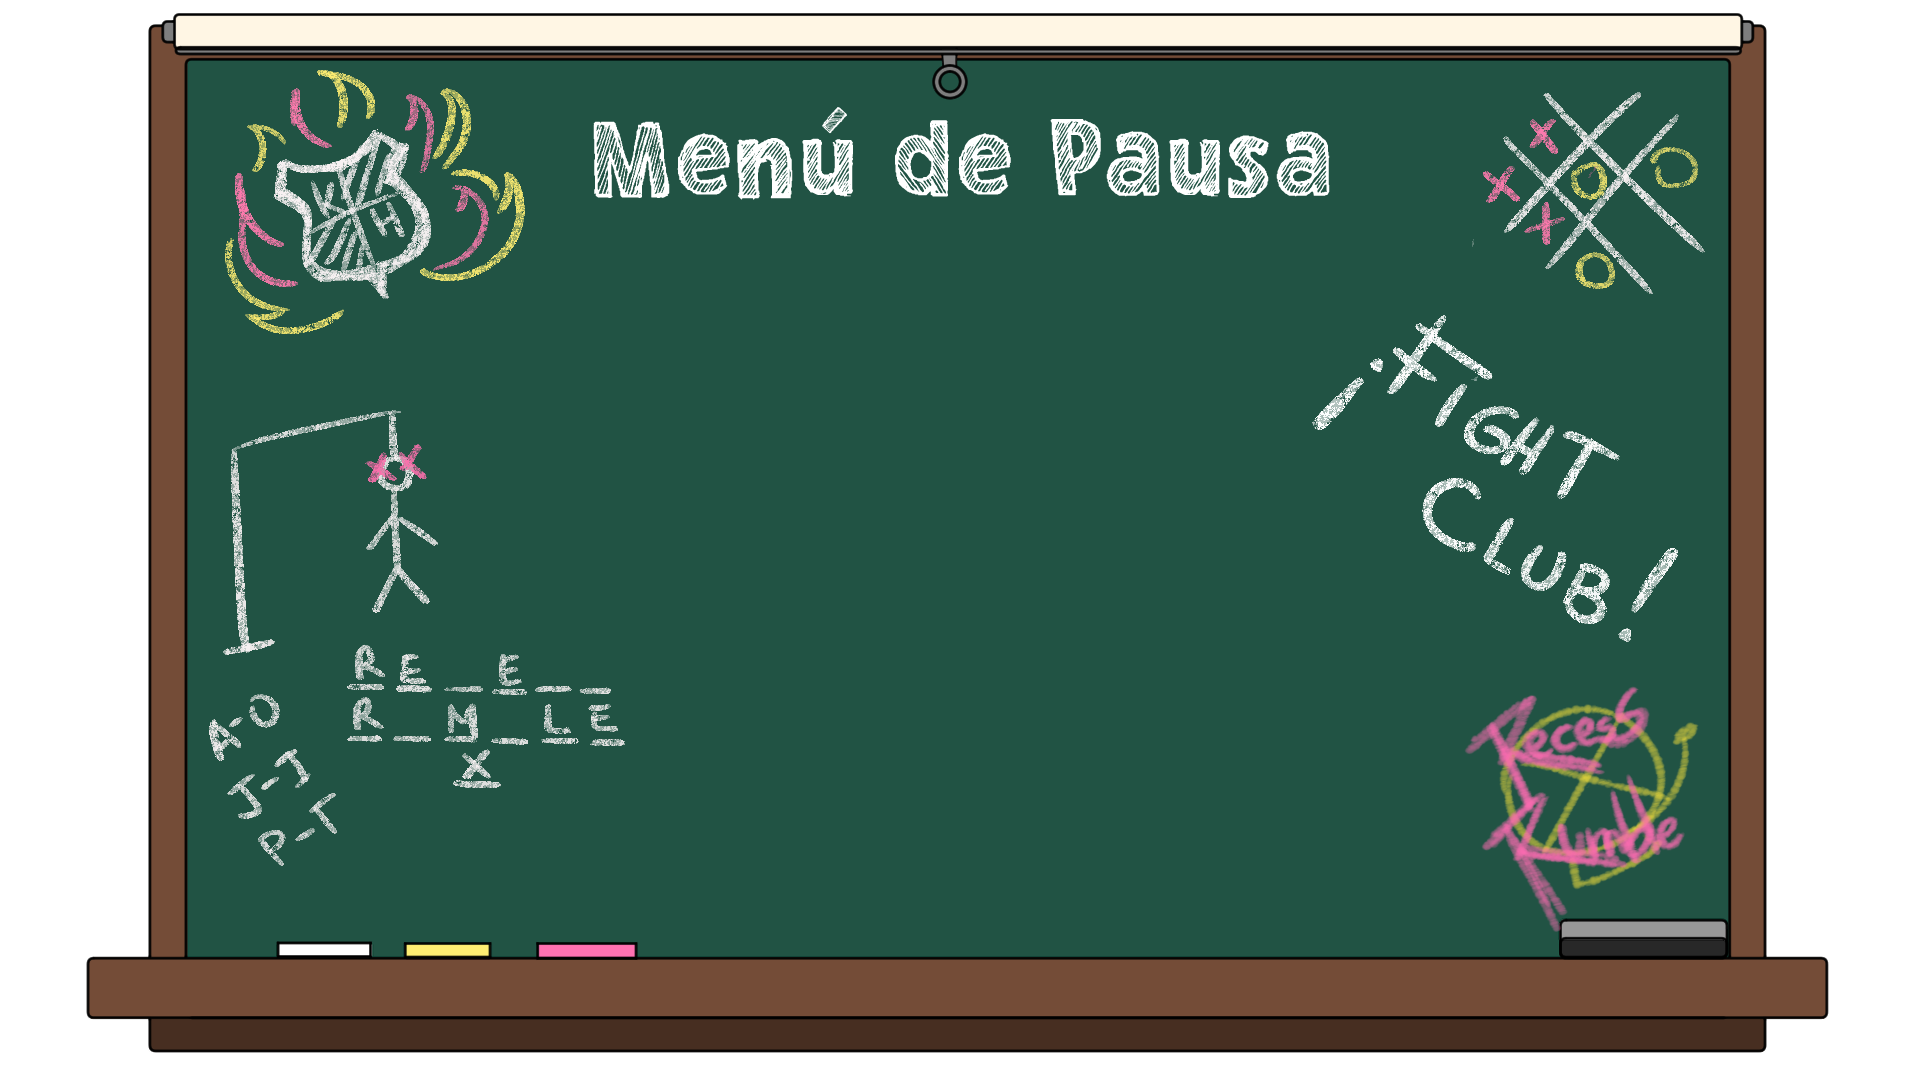 Menú de Pausa
K H
¡FIGHT
CLUB!
R E _ E _ _
R _ M _ L E
X
A-O
J-J
P-T
Recess
Rumble